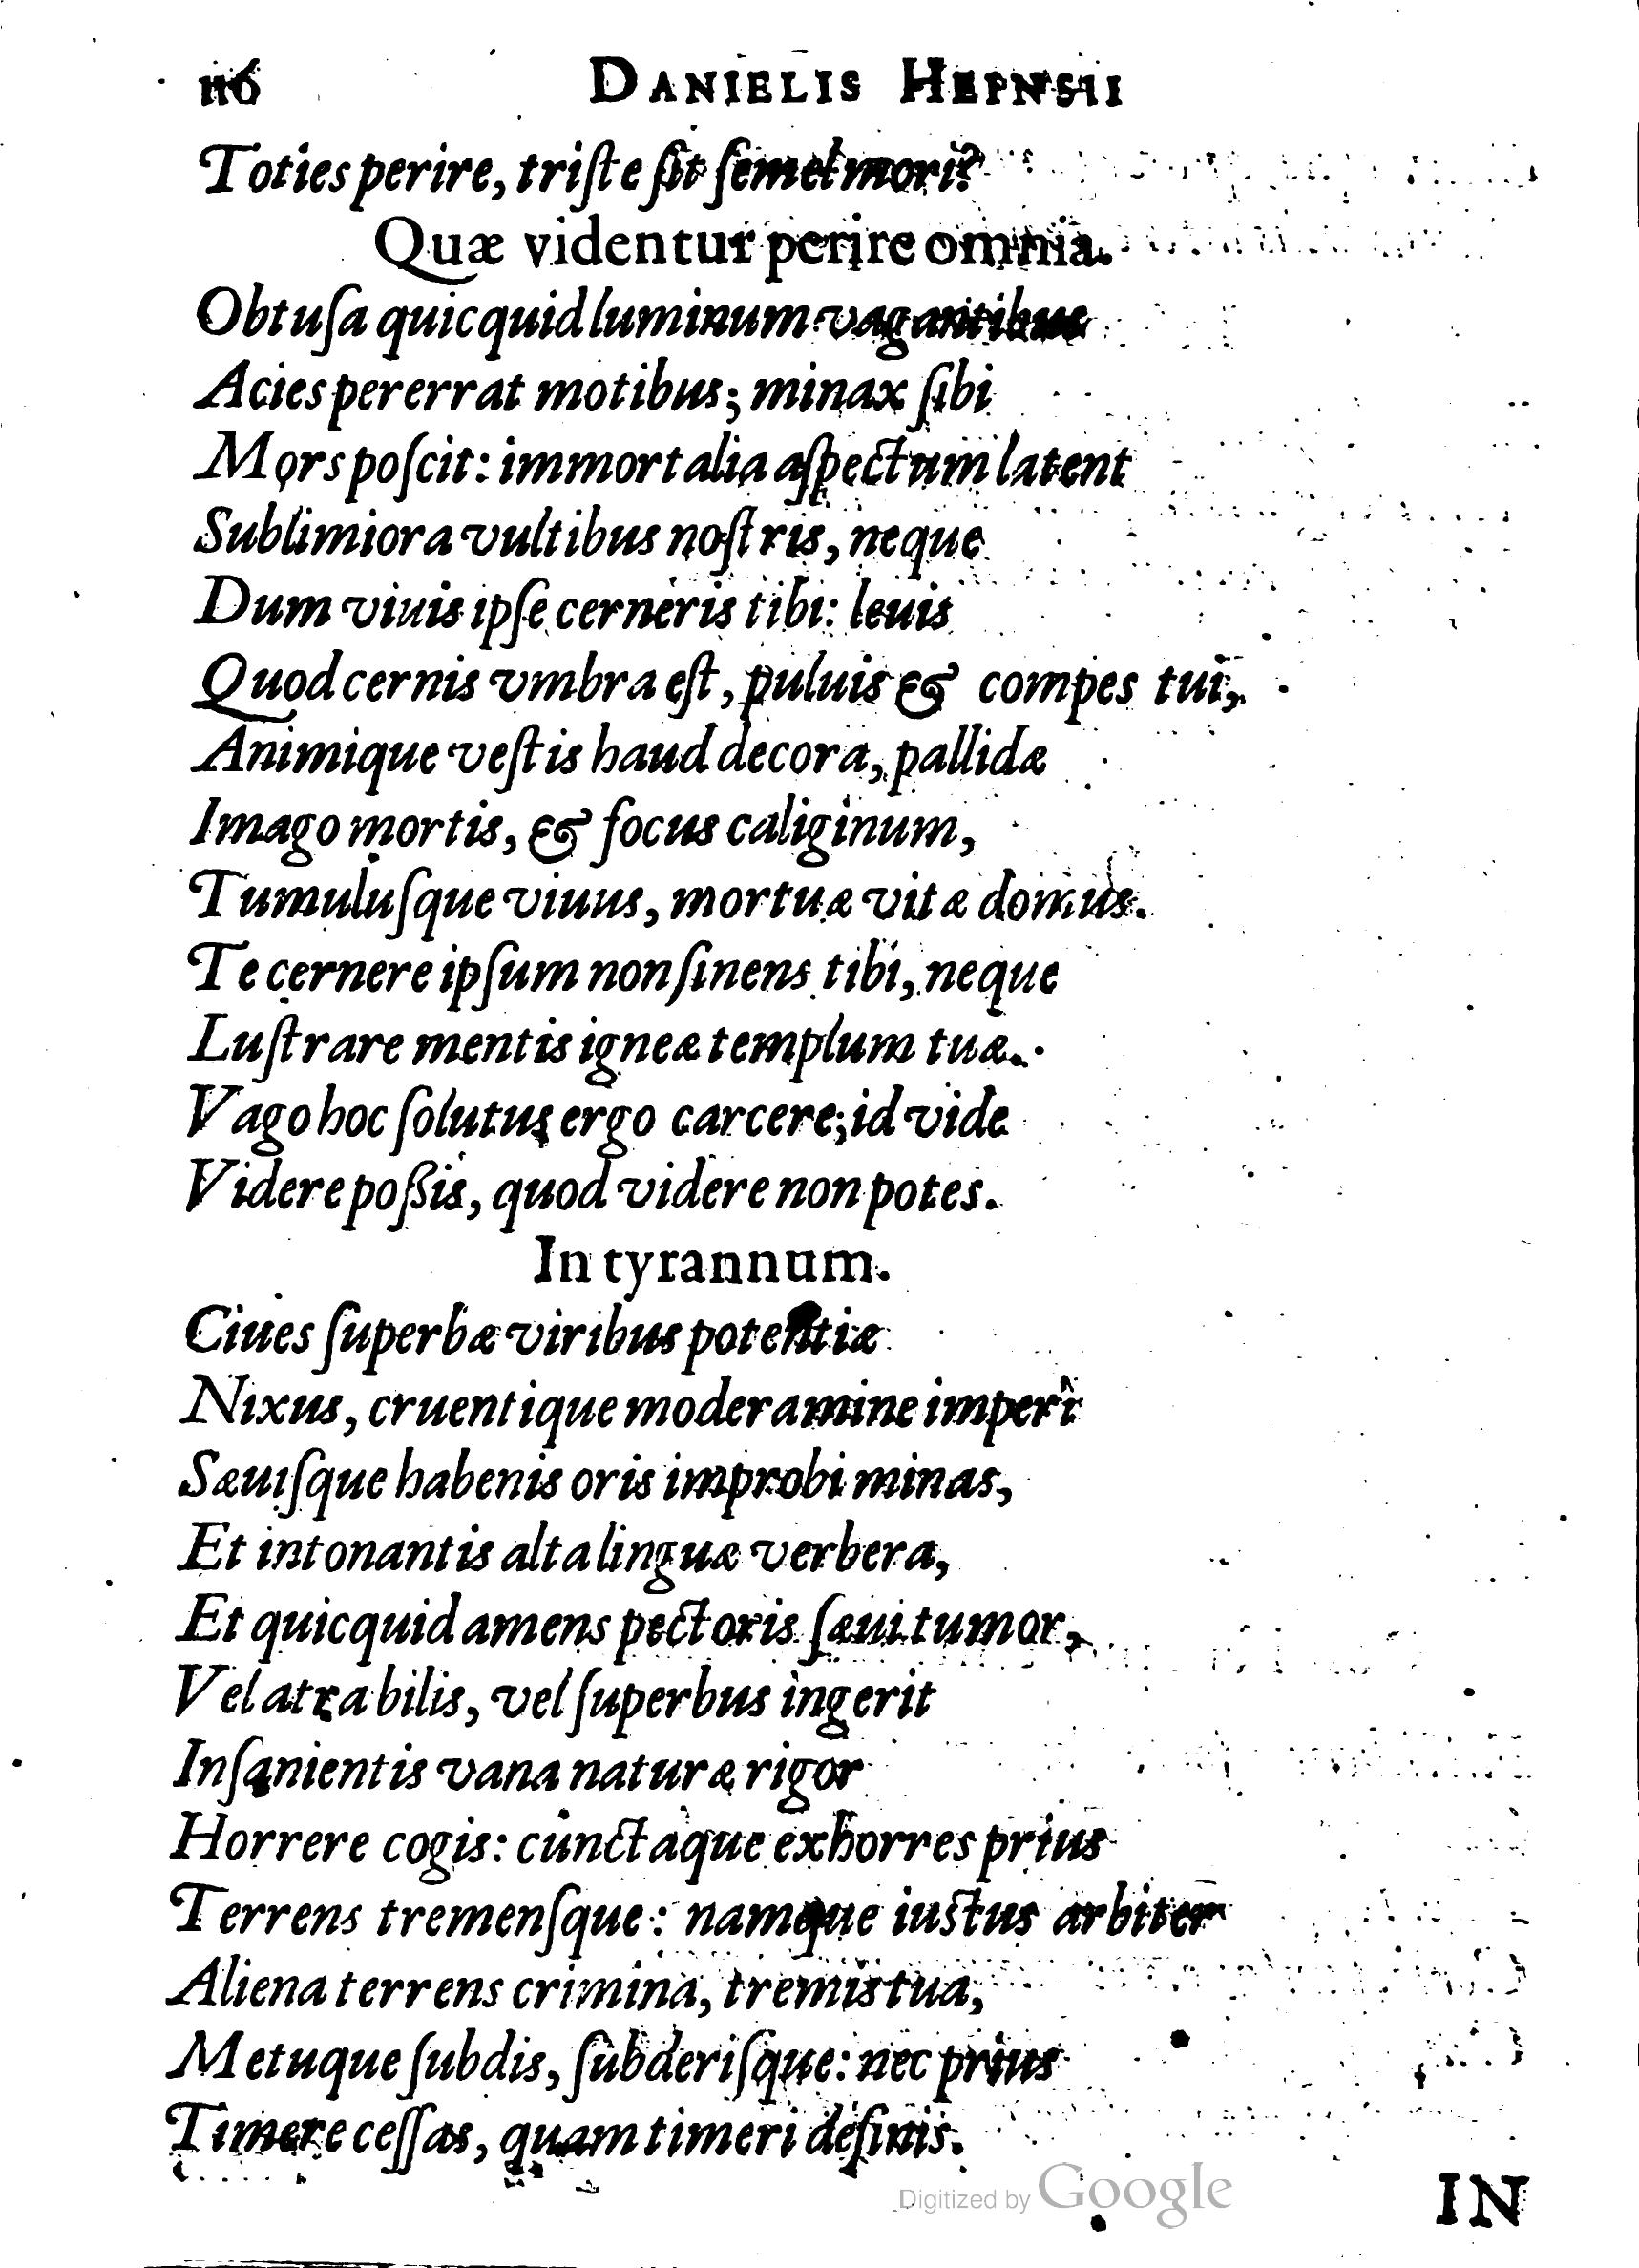 116 DANIELIS HEINSII
Toties perire, triſte ſit ſemel mori?
Quæ videntur perire omnia.
Obtuſa quicquid luminum vagantibus
Acies pererrat motibus; minax ſibi
Mors poſcit: immortalia aſpectum latent
Sublimiora vultibus noſtris, neque
Dum viuis ipſe cerneris tibi: leuis
Quod cernis vmbra eſt, puluis & compes tui,
Animique veſtis haud decora, pallidæ
Imago mortis, & focus caliginum,
Tumuluſque viuus, mortuæ vitæ domus.
Te cernere ipſum non ſinens tibi, neque
Luſtrare mentis igneæ templum tuæ.
Vago hoc ſolutus ergo carcere; id vide
Videre poßis, quod videre non potes.
In tyrannum.
Ciues ſuperbæ viribus potentiæ
Nixus, cruentique moderamine imperî
Sæuiſque habenis oris improbi minas,
Et intonantis alta linguæ verbera,
Et quicquid amens pectoris ſæui tumor,
Vel atra bilis, vel ſuperbus ingerit
Inſanientis vana naturæ rigor
Horrere cogis: cunctaque exhorres prius
Terrens tremenſque: namque iustus arbiter
Aliena terrens crimina, tremis tua,
Metuque ſubdis, ſubderiſque: nec prius
Timere ceſſas, quam timeri deſinis.
IN
Digitized by Google